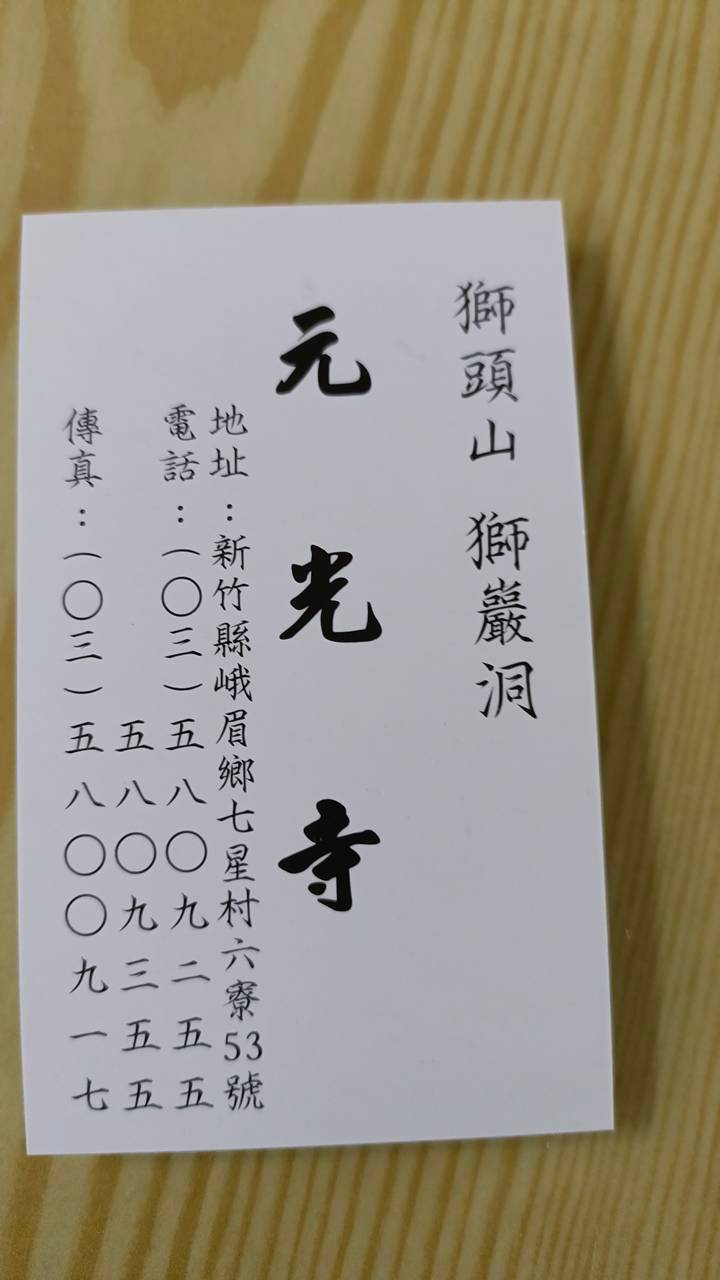 獅頭山 獅巖洞
元光寺
地址：新竹縣峨眉鄉七星村六寮53號
電話：(〇三)五八〇九二五五
五八〇九三五五
傳真：(〇三)五八〇〇九一七